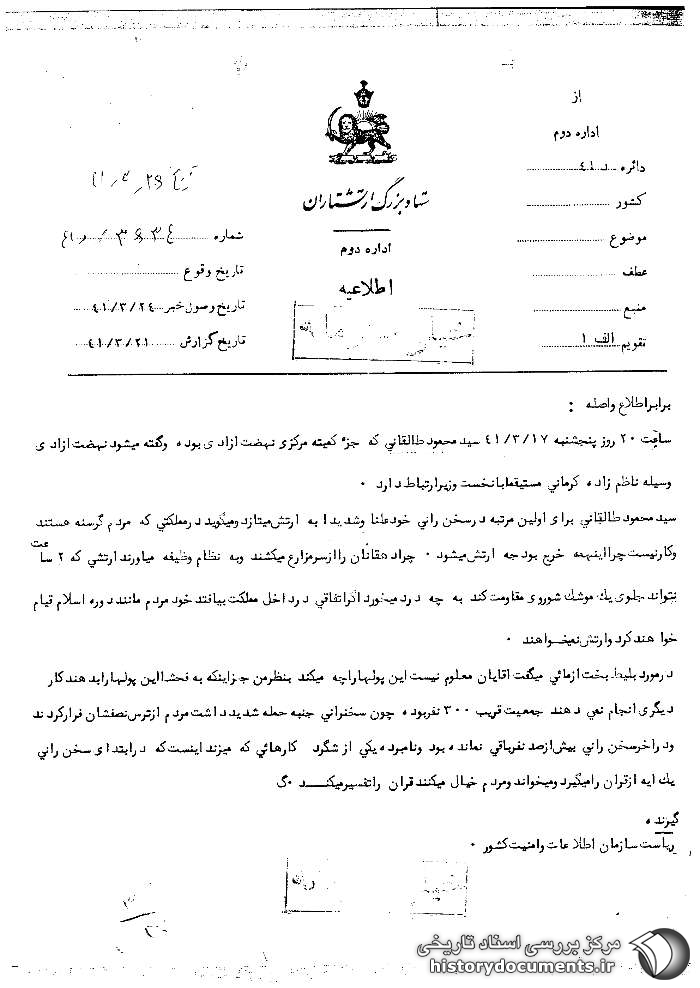 از
اداره دوم
دائره د ٤١
کشور
موضوع
عطف
منبع
تقویم الف ١
ستاد بزرگ ارتشتاران
اداره دوم
اطلاعیه
شماره
تاریخ وقوع
تاریخ وصول خبر ٤١/٣/٢٤
تاریخ گزارش ٤١/٣/٢١
برابر اطلاع واصله :
ساعت ٢٠ روز پنجشنبه ٤١/٣/١٧ سید محمود طالقانی که جزء کمیته مرکزی نهضت ازادی بوده وگفته میشود نهضت ازادی
وسیله ناظم زاده کرمانی مستیقما بانخست وزیر ارتباط دارد ٠
سید محمود طالقانی برای اولین مرتبه درسخن رانی خود علنا وشدیدا به ارتش میتازد ومیگوید درمملکتی که مردم گرسنه هستند
وکار نیست چرا اینهمه خرج بودجه ارتش میشود ٠ چرا دهقانان را ازسرمزارع میکشند وبه نظام وظیفه میاورند ارتشی که ٢ ساعت
نتواند جلوی یك موشك شوروی مقاومت کند به چه درد میخورد اگراتفاقی درداخل مملکت بیافتد خود مردم مانند دوره اسلام قیام
خواهند کرد وارتش نمیخواهند ٠
درمورد بلیط بخت ازمائی میگفت اقایان معلوم نیست این پولهاراچه میکند بنظرمن جزاینکه به فحشااین پولهارابدهند کار
دیگری انجام نمی دهند جمعیت قریب ٣٠٠ نفربوده چون سخنرانی جنبه حمله شدید داشت مردم ازترس نصفشان فرارکردند
ودراخرسخن رانی بیش ازصد نفرباقی نمانده بود ونامبرده یکی از شگرد کارهائی که میزند اینست که درابتدای سخن رانی
یك ایه ازقران رامیگیرد ومیخواند ومردم خیال میکنند قران راتفسیرمیکنـــد ٠گ
گیرنده
ریاست سازمان اطلاعات وامنیت کشور ٠
مرکز بررسی اسناد تاریخی
historydocuments.ir